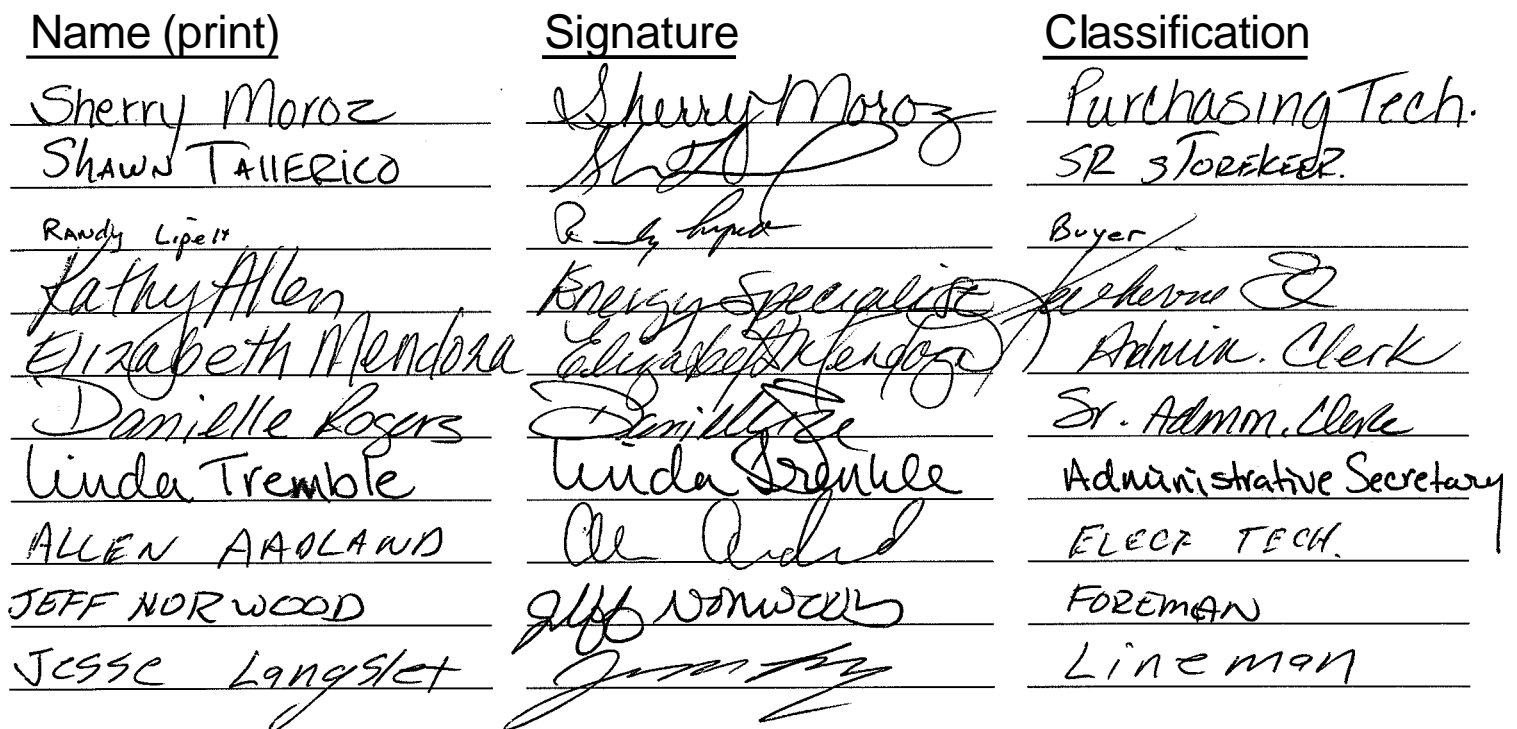 Name (print) Signature Classification
Sherry Moroz Sherry Moroz Purchasing Tech.
SHAWN TAllERiCO SR STOREKEER.
RANDy Lipelt Buyer
Kathy Allen Energy Specialist Katherine
Elizabeth Mendoza Elizabeth Mendoza Admin. Clerk
Danielle Rogers Sr. Admin. Clerk
Linda Tremble Linda Tremble Administrative Secretary
ALLEN AADLAND ELECT TECH.
JEFF NORWOOD Jeff Norwood FOREMAN
Jesse Langslet Lineman